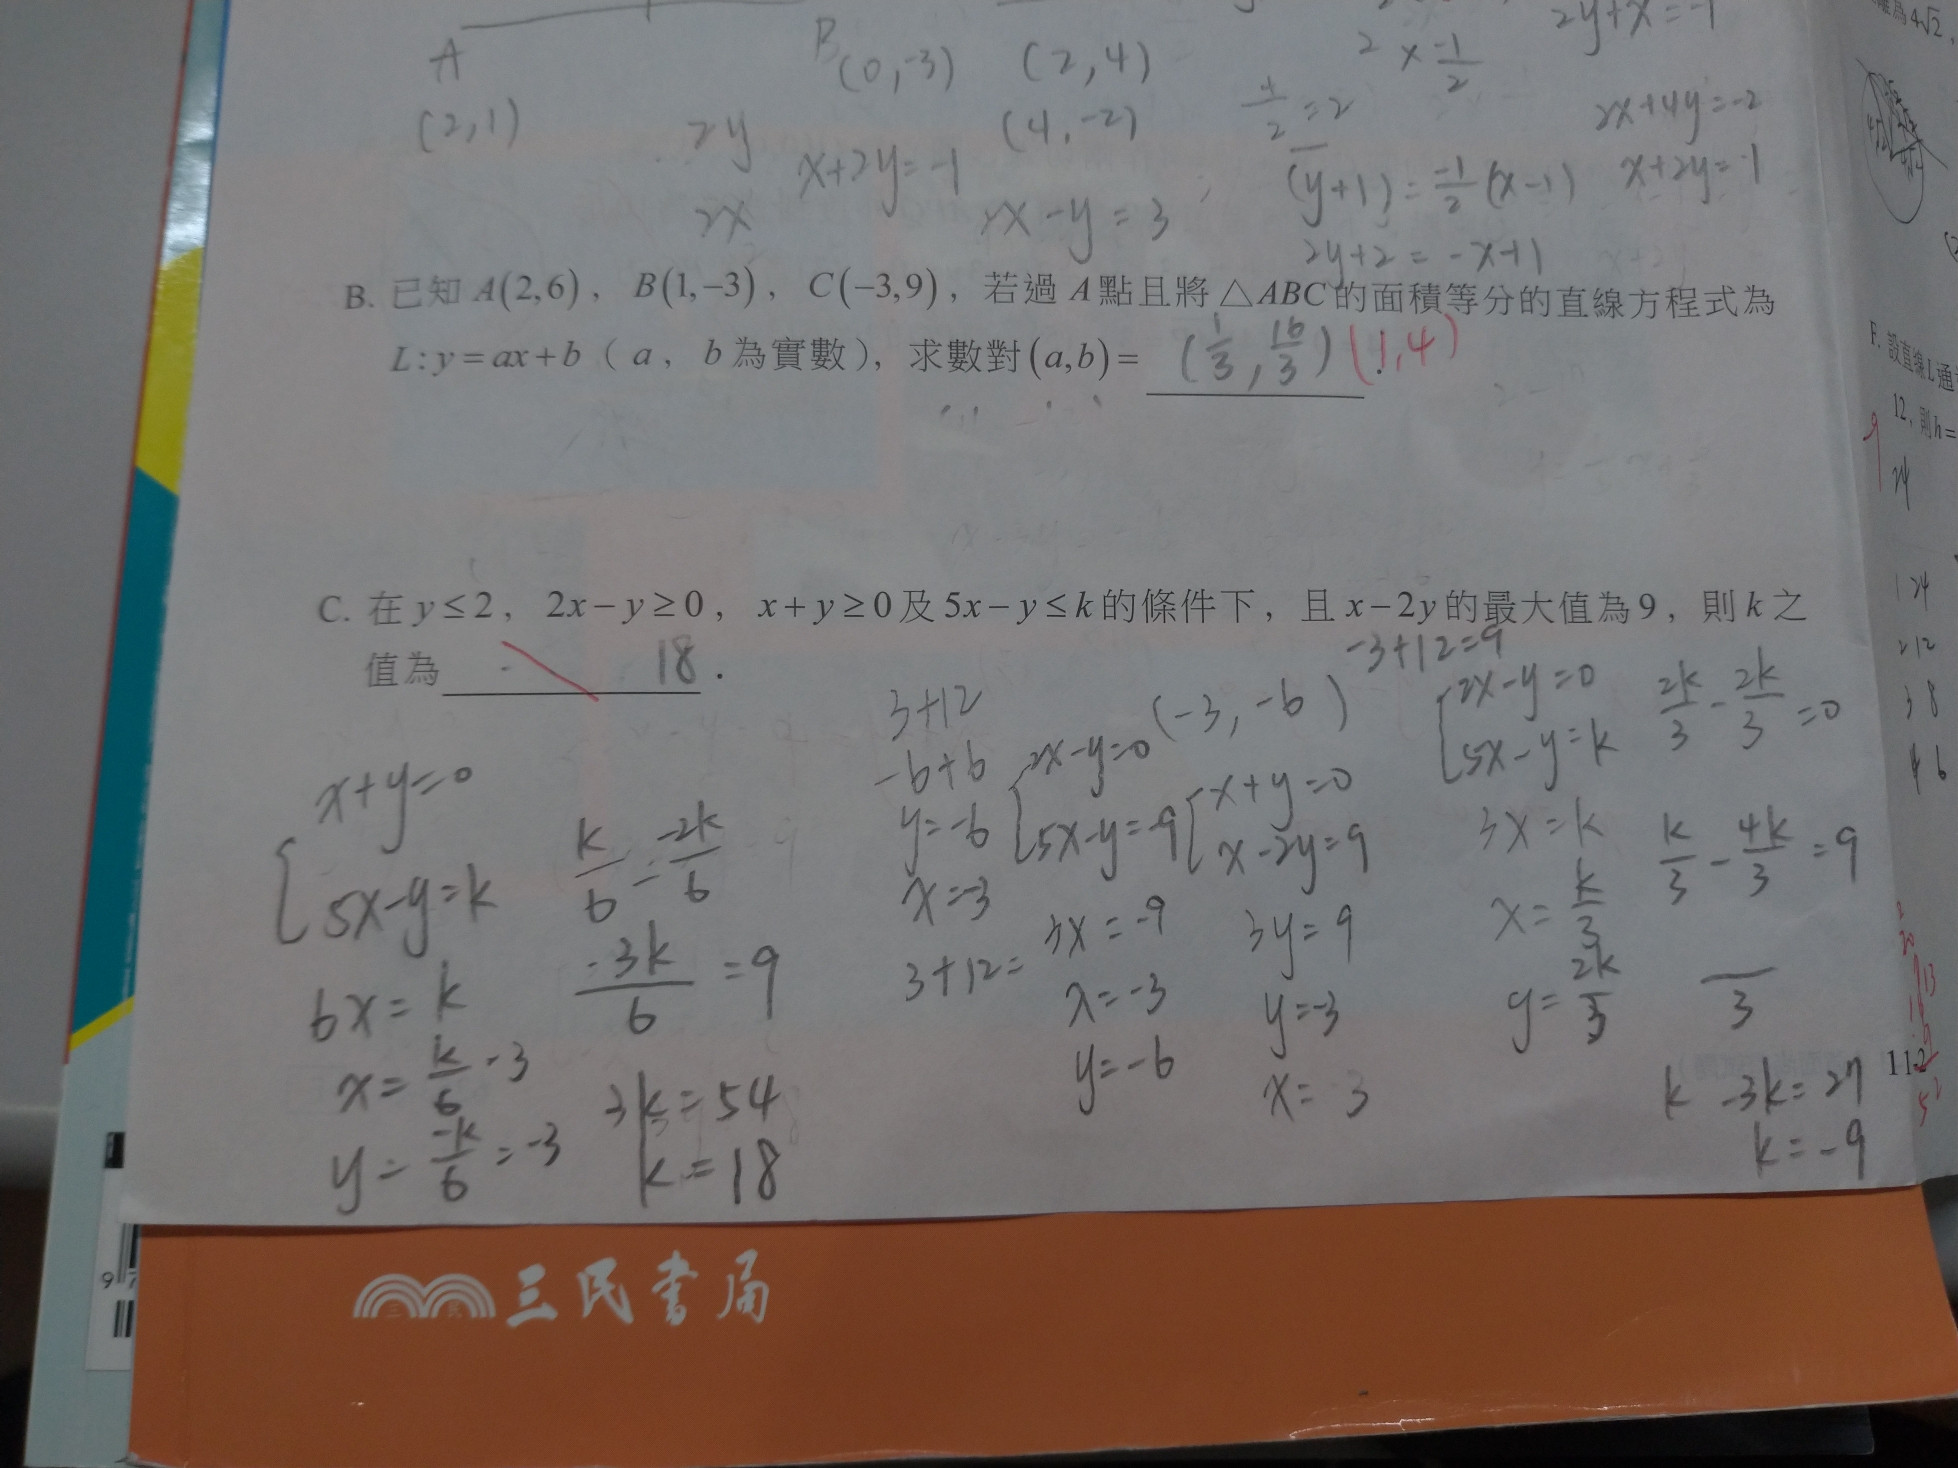 2y+x=-1
A
B
(0,-3)
(2,4)
(2,1)
2y
(4,-2)
x+2y=-1
2x
x-y=3
(y+1)=-1/2(x-1)
2y+2=-x+1
2x+4y=-2
x+2y=-1
B. 已知 A(2,6), B(1,-3), C(-3,9), 若過 A 點且將 △ABC 的面積等分的直線方程式為
L:y=ax+b ( a, b 為實數), 求數對 (a,b)= (1/3, 16/3) (1,4)
C. 在 y≤2, 2x-y≥0, x+y≥0 及 5x-y≤k 的條件下, 且 x-2y 的最大值為 9, 則 k 之
值為 18 .
x+y=0
5x-y=k
6x=k
x=k/6 -3
y=-k/6=-3
k/6--2k/6
-3k/6=9
3k=54
k=18
3+12
-6+6
y=-6
x=-3
3+12=
(-3,-6)
-3+12=9
2x-y=0
5x-y=-9
3x=-9
x=-3
y=-6
x+y=0
x-2y=9
3y=9
y=-3
x=3
2x-y=0
5x-y=k
3x=k
x=k/3
y=2k/3
2k/3-2k/3=0
k/3-4k/3=9
3
k -3k=27
k=-9
4√2
F. 設直線L通
12, 則h=
24
1 24
2 12
3 8
4 6
11-2
三民書局